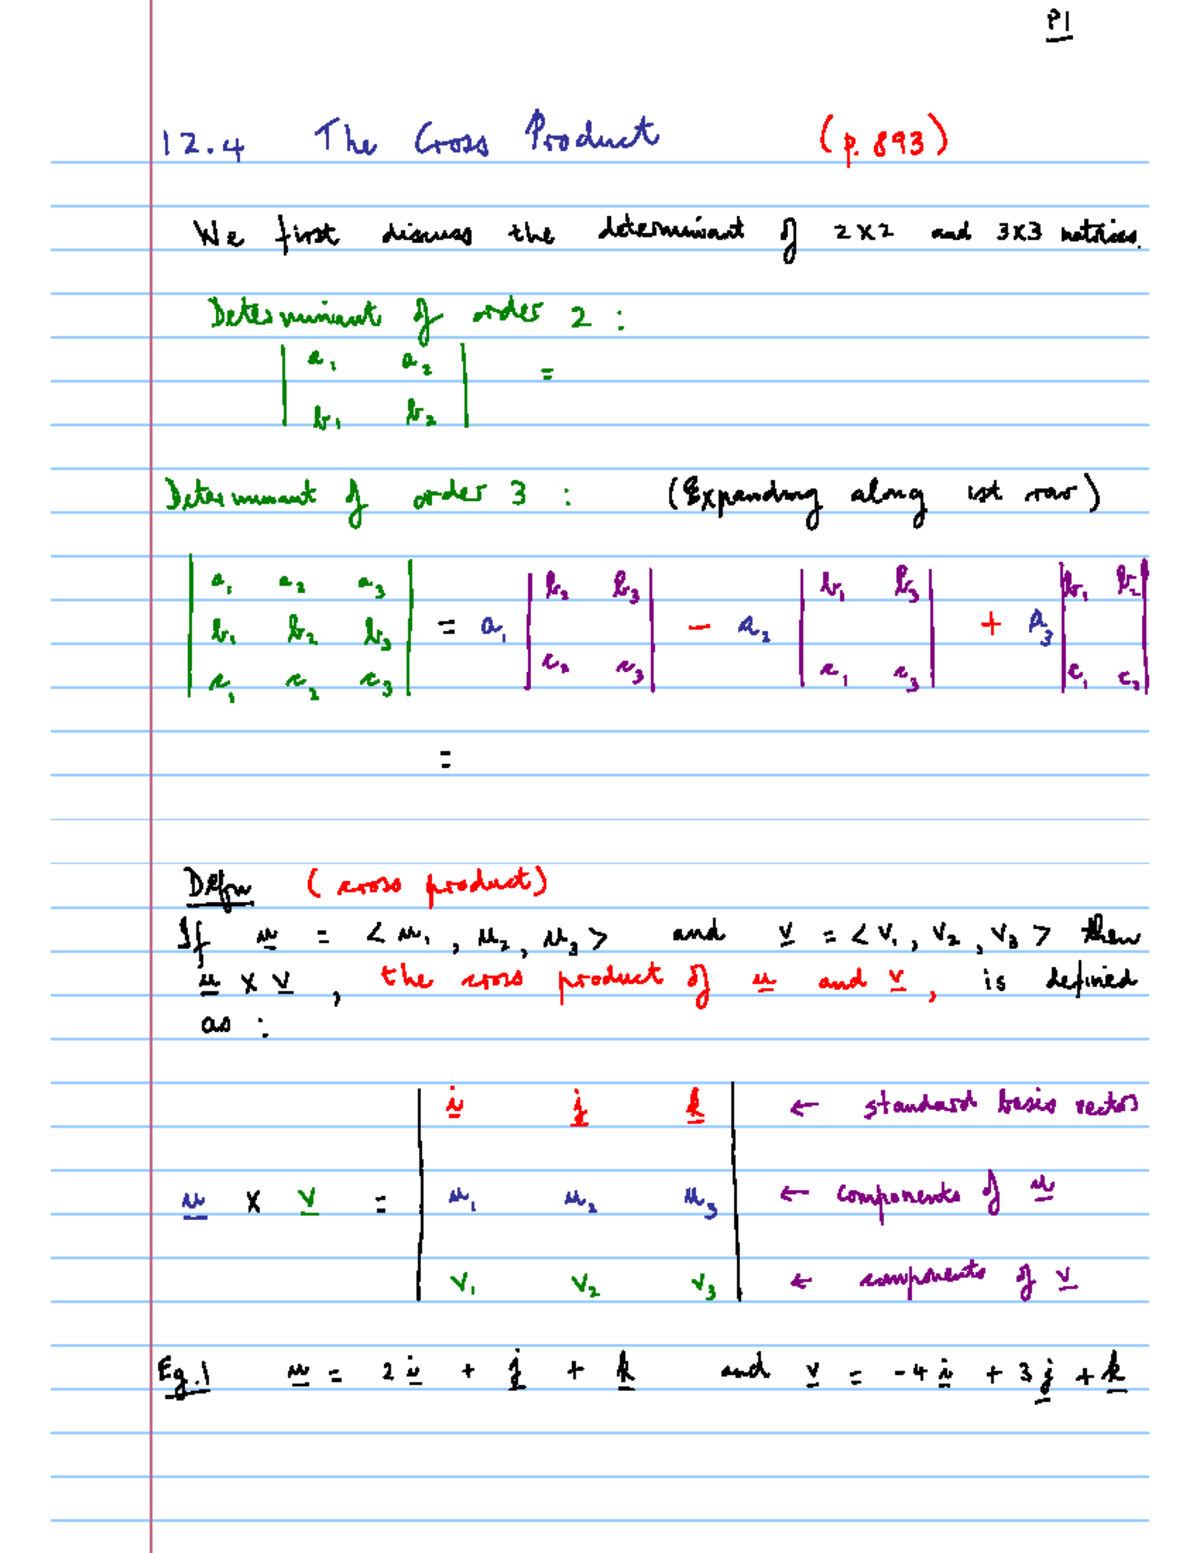 P1
12.4 The Cross Product (p. 893)
We first discuss the determinant of 2x2 and 3x3 matrices.
Determinant of order 2 :
| a₁ a₂ | =
| b₁ b₂ |
Determinant of order 3 : (Expanding along 1st row)
| a₁ a₂ a₃ | | b₂ b₃ | | b₁ b₃ | | b₁ b₂ |
| b₁ b₂ b₃ | = a₁ − a₂ + a₃
| c₁ c₂ c₃ | | c₂ c₃ | | c₁ c₃ | | c₁ c₂ |
=
Defn (cross product)
If u = <u₁, u₂, u₃> and v = <v₁, v₂, v₃> then
u x v, the cross product of u and v, is defined
as :
| i j k | ← standard basis vectors
u x v = | u₁ u₂ u₃ | ← components of u
| v₁ v₂ v₃ | ← components of v
Eg.1 u = 2i + j + k and v = -4i + 3j + k